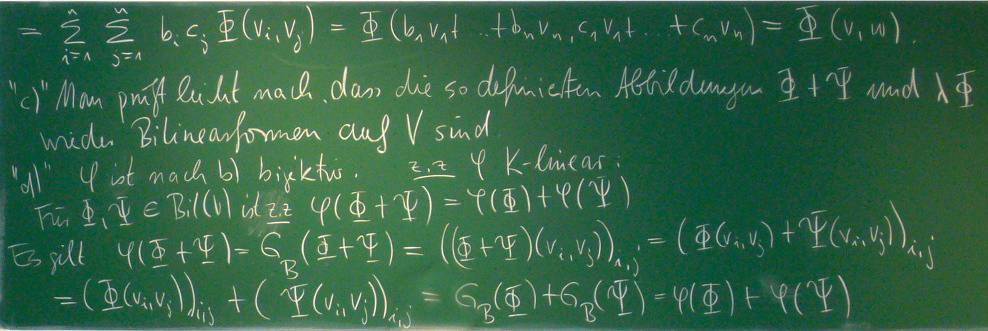 = Σ_{i=1}^{n} Σ_{j=1}^{n} b_i c_j Φ(v_i, v_j) = Φ(b_1 v_1 + ... + b_n v_n, c_1 v_1 + ... + c_n v_n) = Φ(v, w).
"c)" Man prüft leicht nach, dass die so definierten Abbildungen Φ + Ψ und λΦ
wieder Bilinearformen auf V sind
"d)" φ ist nach b) bijektiv. z.z φ K-linear:
Für Φ, Ψ ∈ Bil(V) ist z.z φ(Φ + Ψ) = φ(Φ) + φ(Ψ)
Es gilt φ(Φ + Ψ) = G_B(Φ + Ψ) = ((Φ + Ψ)(v_i, v_j))_{i,j} = (Φ(v_i, v_j) + Ψ(v_i, v_j))_{i,j}
= (Φ(v_i, v_j))_{i,j} + (Ψ(v_i, v_j))_{i,j} = G_B(Φ) + G_B(Ψ) = φ(Φ) + φ(Ψ)